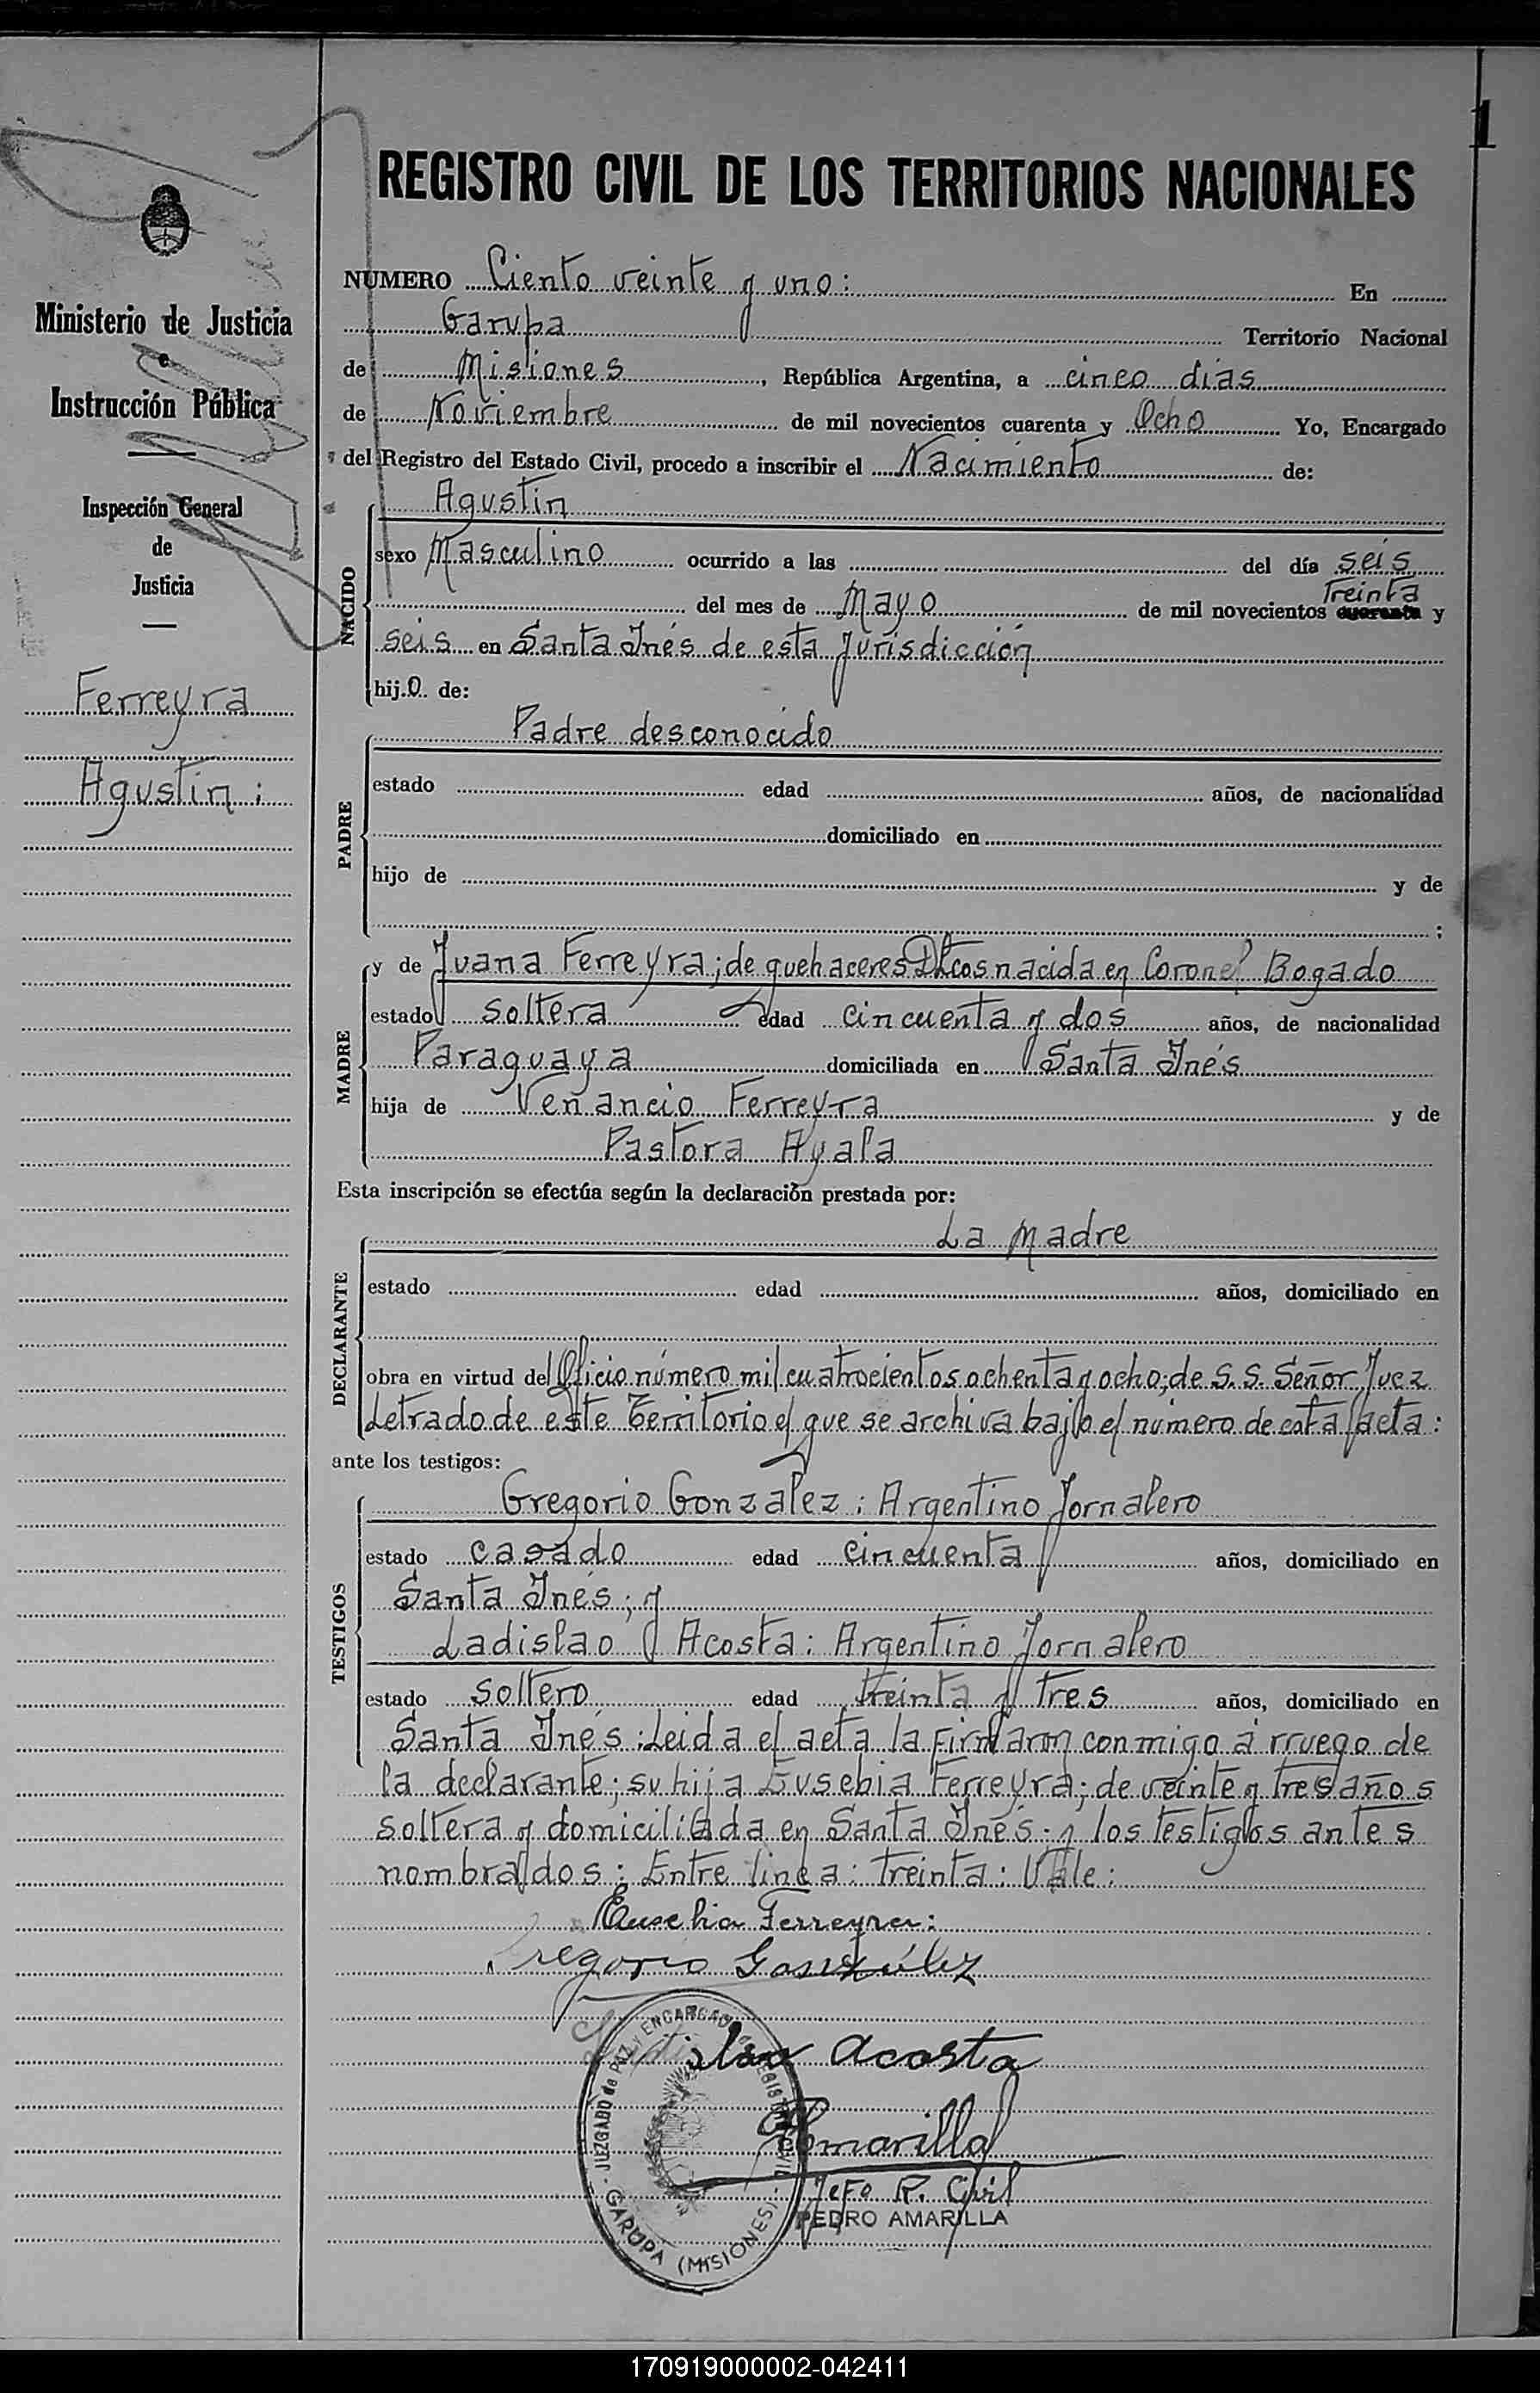 1
REGISTRO CIVIL DE LOS TERRITORIOS NACIONALES
Ministerio de Justicia
e
Instrucción Pública
Inspección General
de
Justicia
Ferreyra
Agustin:
NUMERO Ciento veinte y uno: En
Garupa Territorio Nacional
de Misiones, República Argentina, a cinco dias
de Noviembre de mil novecientos cuarenta y Ocho Yo, Encargado
del Registro del Estado Civil, procedo a inscribir el Nacimiento de:
NACIDO
Agustin
sexo Masculino ocurrido a las del día seis
Treinta
del mes de Mayo de mil novecientos cuarenta y
seis en Santa Inés de esta Jurisdicción
hijo de:
PADRE
Padre desconocido
estado edad años, de nacionalidad
domiciliado en
hijo de y de
;
MADRE
y de Juana Ferreyra; de quehaceres Dtcos nacida en Coronel Bogado
estado soltera edad cincuenta y dos años, de nacionalidad
Paraguaya domiciliada en Santa Inés
hija de Venancio Ferreyra y de
Pastora Ayala
Esta inscripción se efectúa según la declaración prestada por:
DECLARANTE
La Madre
estado edad años, domiciliado en
obra en virtud del Oficio número mil cuatrocientos ochenta y ocho; de S.S. Señor Juez
Letrado de este Territorio el que se archiva bajo el número de esta acta:
ante los testigos:
TESTIGOS
Gregorio Gonzalez: Argentino Jornalero
estado casado edad cincuenta años, domiciliado en
Santa Inés; y
Ladislao Acosta: Argentino Jornalero
estado soltero edad treinta y tres años, domiciliado en
Santa Inés: Leida el acta la Firmaron conmigo á rruego de
la declarante; su hija Eusebia Ferreyra; de veinte y tres años
soltera y domiciliada en Santa Inés: y los testigos antes
nombrados: Entre linea: Treinta: Vale:
Eusebia Ferreyra:
Gregorio Gonzúlez
Ladislao Acosta
Amarilla
Jefe R. Civil
PEDRO AMARILLA
JUZGADO de PAZ Y ENCARGADO REGISTRO CIVIL
GARUPA (MISIONES)
170919000002-042411